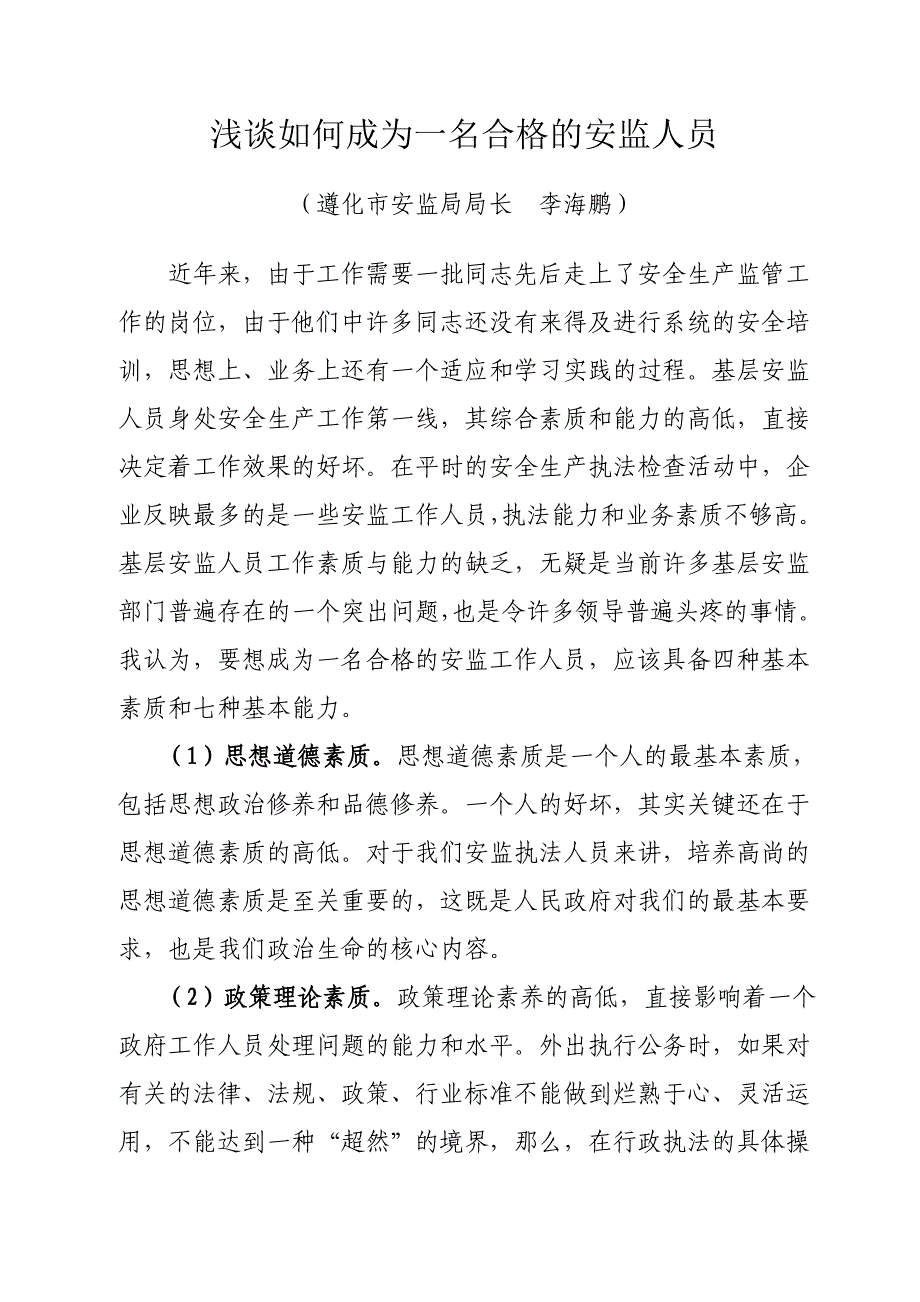 浅谈如何成为一名合格的安监人员
（遵化市安监局局长　李海鹏）
近年来，由于工作需要一批同志先后走上了安全生产监管工
作的岗位，由于他们中许多同志还没有来得及进行系统的安全培
训，思想上、业务上还有一个适应和学习实践的过程。基层安监
人员身处安全生产工作第一线，其综合素质和能力的高低，直接
决定着工作效果的好坏。在平时的安全生产执法检查活动中，企
业反映最多的是一些安监工作人员，执法能力和业务素质不够高。
基层安监人员工作素质与能力的缺乏，无疑是当前许多基层安监
部门普遍存在的一个突出问题，也是令许多领导普遍头疼的事情。
我认为，要想成为一名合格的安监工作人员，应该具备四种基本
素质和七种基本能力。
（1）思想道德素质。思想道德素质是一个人的最基本素质，
包括思想政治修养和品德修养。一个人的好坏，其实关键还在于
思想道德素质的高低。对于我们安监执法人员来讲，培养高尚的
思想道德素质是至关重要的，这既是人民政府对我们的最基本要
求，也是我们政治生命的核心内容。
（2）政策理论素质。政策理论素养的高低，直接影响着一个
政府工作人员处理问题的能力和水平。外出执行公务时，如果对
有关的法律、法规、政策、行业标准不能做到烂熟于心、灵活运
用，不能达到一种“超然”的境界，那么，在行政执法的具体操